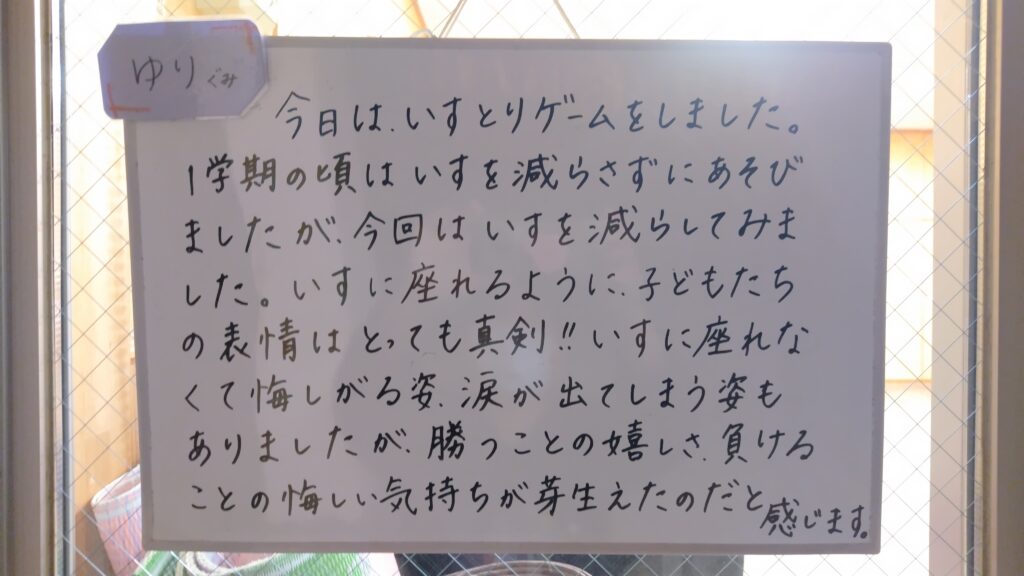 ゆりぐみ
今日は、いすとりゲームをしました。
1学期の頃はいすを減らさずにあそび
ましたが、今回はいすを減らしてみま
した。いすに座れるように、子どもたち
の表情はとっても真剣!!いすに座れな
くて悔しがる姿、涙が出てしまう姿も
ありましたが、勝つことの嬉しさ、負ける
ことの悔しい気持ちが芽生えたのだと
感じます。